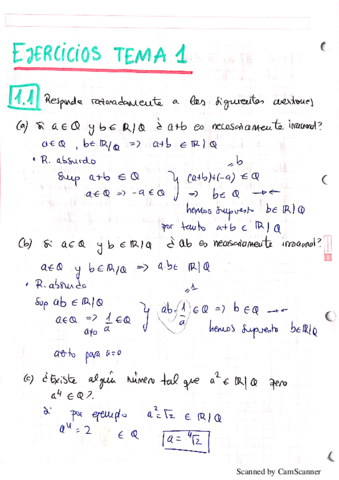 EJERCICIOS TEMA 1
1.1 Responda razonadamente a las siguientes cuestiones
(a) Si a ∈ Q y b ∈ R/Q ¿ a+b es necesariamente irracional?
a ∈ Q , b ∈ R/Q => a+b ∈ R/Q
• R. absurdo
Sup a+b ∈ Q
a ∈ Q => -a ∈ Q
} (a+b)+(-a) ∈ Q
b
=> b ∈ Q →←
hemos supuesto b ∈ R/Q
por tanto a+b ∈ R/Q
(b) Si a ∈ Q y b ∈ R/Q ¿ ab es necesariamente irracional?
a ∈ Q y b ∈ R/Q => a·b ∈ R/Q
• R. absurdo
Sup ab ∈ R/Q
a ∈ Q => 1/a ∈ Q
a≠0
} ab · 1/a ∈ Q => b ∈ Q →←
1
hemos supuesto b ∈ R/Q
para a=0
(c) ¿Existe algún número tal que a² ∈ R/Q pero
a⁴ ∈ Q?
por ejemplo a² = √2 ∈ R/Q
a⁴ = 2 ∈ Q
a = ⁴√2
Scanned by CamScanner